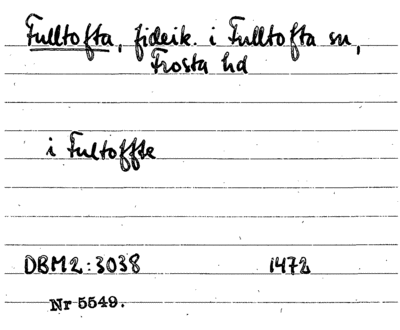 Fulltofta, fideik. i Fulltofta sn,
Frosta hd
i Fultoffte
DBM2:3038 1472
Nr 5549.